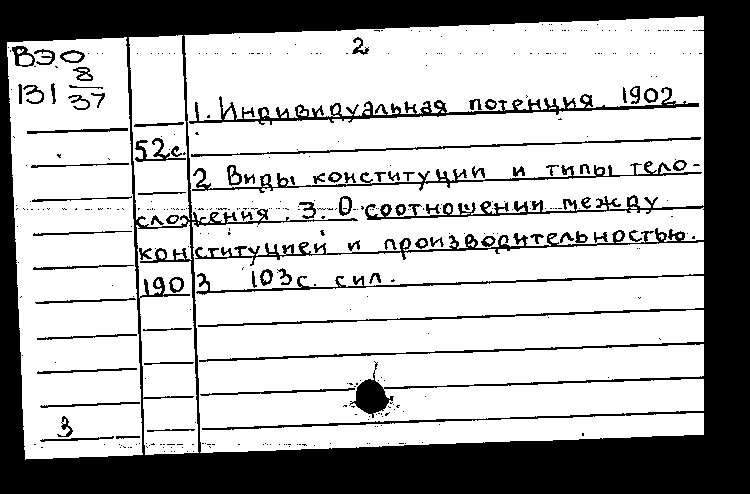 ВЭО
131 8/37
2
1. Индивидуальная потенция. 1902.
52с.
2 Виды конституции и типы тело-
сложения. 3. О соотношении между
конституцией и производительностью.
1903 103с. сил.
3